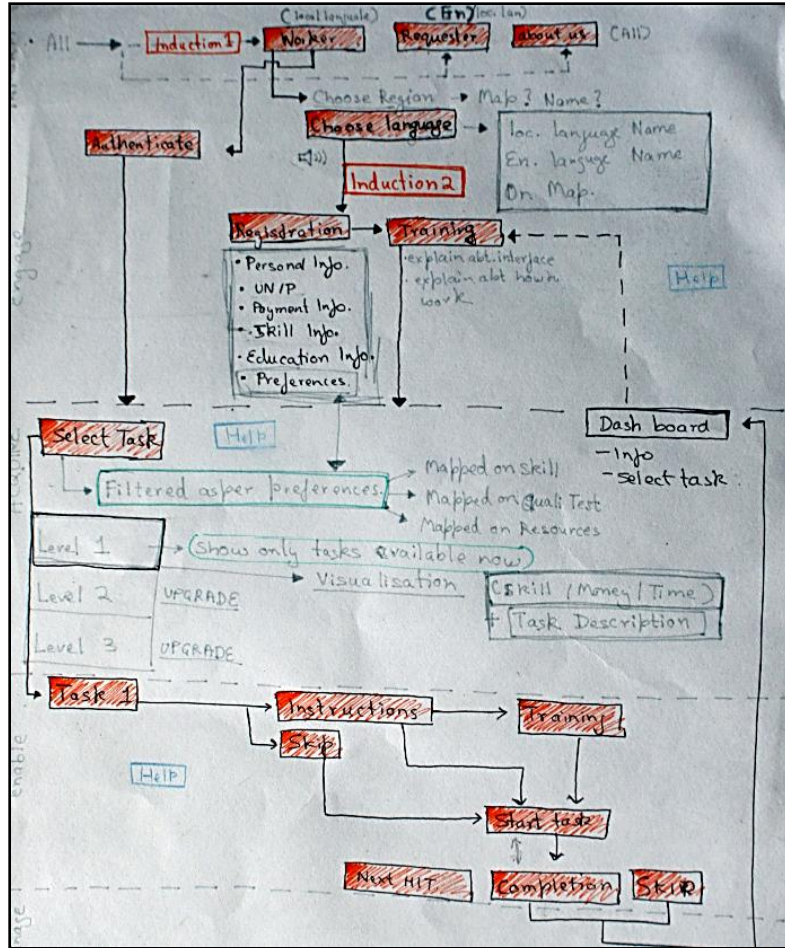 (local language)
(En)/loc. lan)
• All
Induction 1
Worker
Requester
about us
(All)
Choose Region
Map? Name?
Authenticate
Choose language
loc. language Name
En. languge Name
On Map.
Induction 2
Registration
Training
• explain abt. interface
• explain abt how work
Help
engage
• Personal Info.
• UN/P
• Payment Info.
• Skill Info.
• Education Info.
• Preferences.
Select Task
Help
Dash board
- Info
- Select task
Filtered as per preferences.
Mapped on Skill
Mapped on Quali Test
Mapped on Resources
Level 1
Show only tasks available now
Visualisation
(Skill / Money / Time)
+ Task Description
Level 2
UPGRADE
Level 3
UPGRADE
Task 1
Instructions
Training
Skip
enable
Help
Start task
Next HIT
Completion
SKIP